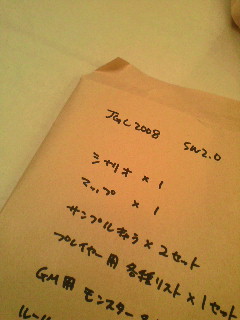 JGC2008 SW2.0
シナリオ×1
マップ×1
サンプルキャラ×2セット
プレイヤー用 各種リスト×1セット
GM用 モンスター
ルール